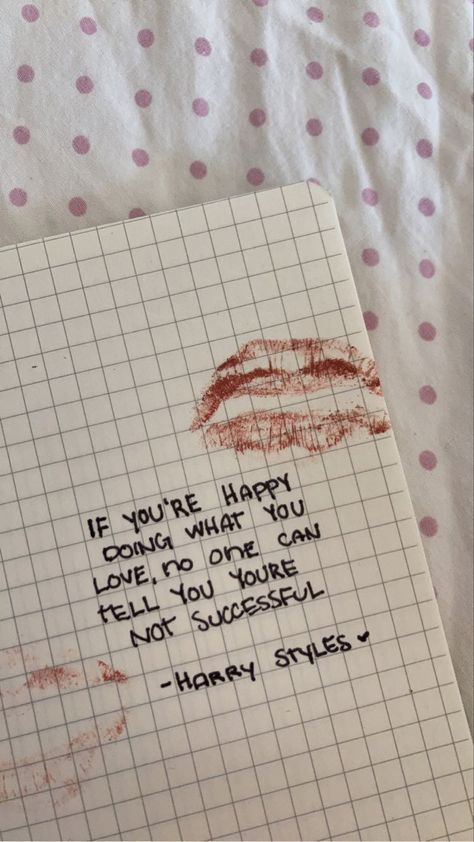 IF YOU'RE HAPPY
DOING WHAT YOU
LOVE, NO ONE CAN
TELL YOU YOURE
NOT SUCCESSFUL
-HARRY STYLES